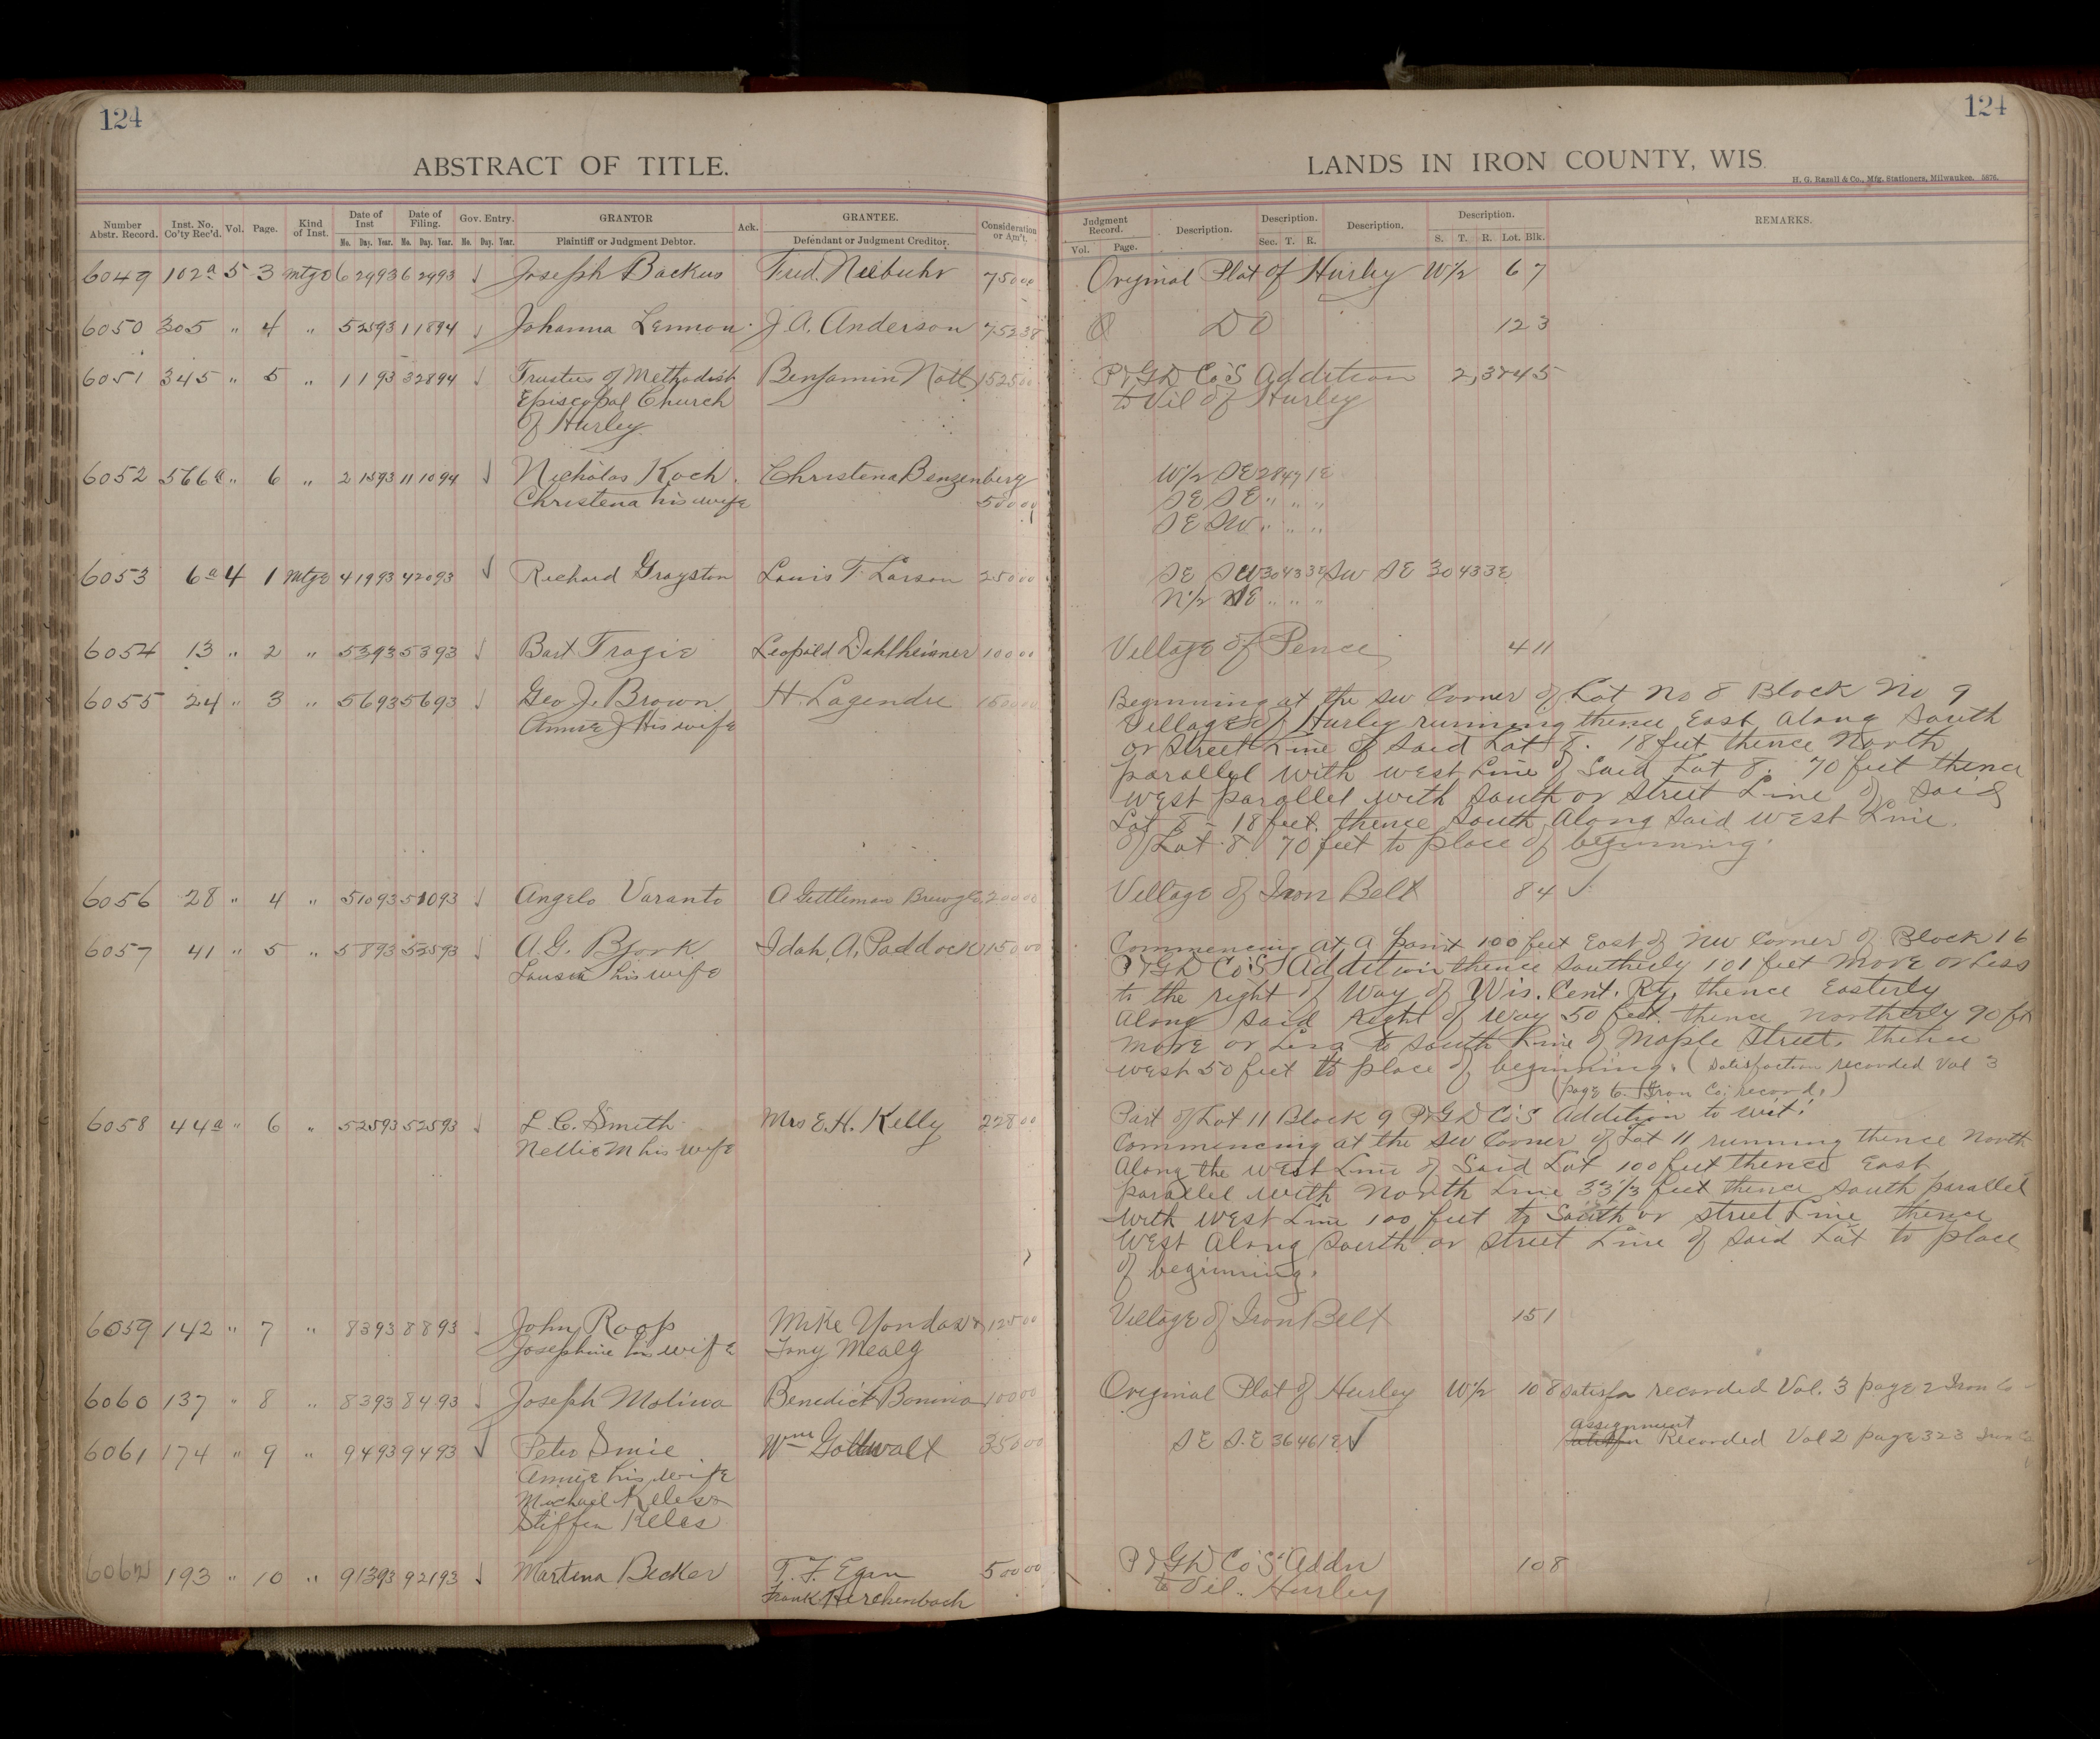 124
124
ABSTRACT OF TITLE.
LANDS IN IRON COUNTY, WIS.
H. G. Razall & Co., Mfg. Stationers, Milwaukee. 5876.
Number Abstr. Record. Inst. No. Co'ty Rec'd. Vol. Page. Kind of Inst. Date of Inst Mo. Day. Year. Date of Filing. Mo. Day. Year. Gov. Entry. Mo. Day. Year. GRANTOR Plaintiff or Judgment Debtor. Ack. GRANTEE. Defendant or Judgment Creditor. Consideration or Am't.
Judgment Record. Vol. Page. Description. Description. Sec. T. R. Description. Description. S. T. R. Lot. Blk. REMARKS.
6049 102a 5 3 Mtge 6 29 93 6 29 93 ✓ Joseph Backus Fred. Niebuhr 750 00 Original Plat of Hurley W½ 6 7
6050 305 " 4 " 5 25 93 1 18 94 ✓ Johanna Lennon J. A. Anderson 752 38 DO 12 3
6051 345 " 5 " 1 1 93 3 28 94 ✓ Trustees of Methodist Benjamin Nott 1525 00 P & GD Co's Addition 2,3&4 5
Episcopal Church to Vil of Hurley
of Hurley
6052 566a " 6 " 2 15 93 11 10 94 ✓ Nicholas Koch Christena Benzenberg W½ SE 28 47 1E
Christena his wife 500 00 SE SE " " "
SE SW " " "
6053 6a 4 1 Mtge 4 19 93 4 20 93 ✓ Richard Grayston Louis T. Larson 250 00 SE SW 30 43 3E SW SE 30 43 3E
N½ SE " " "
6054 13 " 2 " 5 3 93 5 3 93 ✓ Bart Tragie Leopold Dahlheimer 100 00 Village of Pence 4 11
6055 24 " 3 " 5 6 93 5 6 93 ✓ Geo J. Brown H. Lagendre 150 00 Beginning at the SW Corner of Lot No 8 Block No 9
Annie J His wife Village of Hurley running thence East along South
or Street Line of said Lot 8. 18 feet thence North
parallel with west Line of said Lot 8. 70 feet thence
west parallel with south or street Line of said
Lot 8 - 18 feet. thence South Along said west Line
of Lot 8 70 feet to place of beginning.
6056 28 " 4 " 5 10 93 5 10 93 ✓ Angelo Varanto A Gettleman Brewg Co. 200 00 Village of Iron Belt 8 4 ✓
6057 41 " 5 " 5 8 93 5 25 93 ✓ A. G. Bjork Idah. A. Paddock 150 00 Commencing at a point 100 feet East of NW Corner of Block 16
his wife P & GD Co's Addition thence Southerly 101 feet more or less
to the right of Way of Wis. Cent. Ry. thence Easterly
Along said Right of Way 50 feet. thence Northerly 90 ft
more or less to South Line of Maple Street. thence
west 50 feet to place of beginning. (Satisfaction recorded Vol 3
page 6. Iron Co. record.)
6058 44a " 6 " 5 25 93 5 25 93 ✓ L. C. Smith Mrs E. H. Kelly 228 00 Part of Lot 11 Block 9 P & GD Co's Addition to wit:
Nellie M his wife Commencing at the SW Corner of Lot 11 running thence North
Along the west Line of Said Lot 100 feet thence East
parallel with North Line 33⅓ feet thence South parallel
with west Line 100 feet to South or street Line thence
West Along South or street Line of said Lot to place
of beginning.
6059 142 " 7 " 8 3 93 8 8 93 ✓ John Roop Mike Yondas & 125 00 Village of Iron Belt 15 1
Josephine his wife Tony Mealy
6060 137 " 8 " 8 3 93 8 4 93 ✓ Joseph Moliwa Benedict Bonivia 100 00 Original Plat of Hurley W½ 10 8 Satisfn recorded Vol. 3 page 2 Iron Co
6061 174 " 9 " 9 4 93 9 4 93 ✓ Peter Smie Wm Gottwalt 350 00 SE SE 36 46 1E ✓ assignment Recorded Vol 2 page 323 Iron Co
Annie his wife
Michael Keleso
Stiffen Keles
6062 193 " 10 " 9 13 93 9 21 93 ✓ Martina Becker T. F. Egan 500 00 P & GD Co's Addn 10 8
Frank Herchenbach to Vil. Hurley